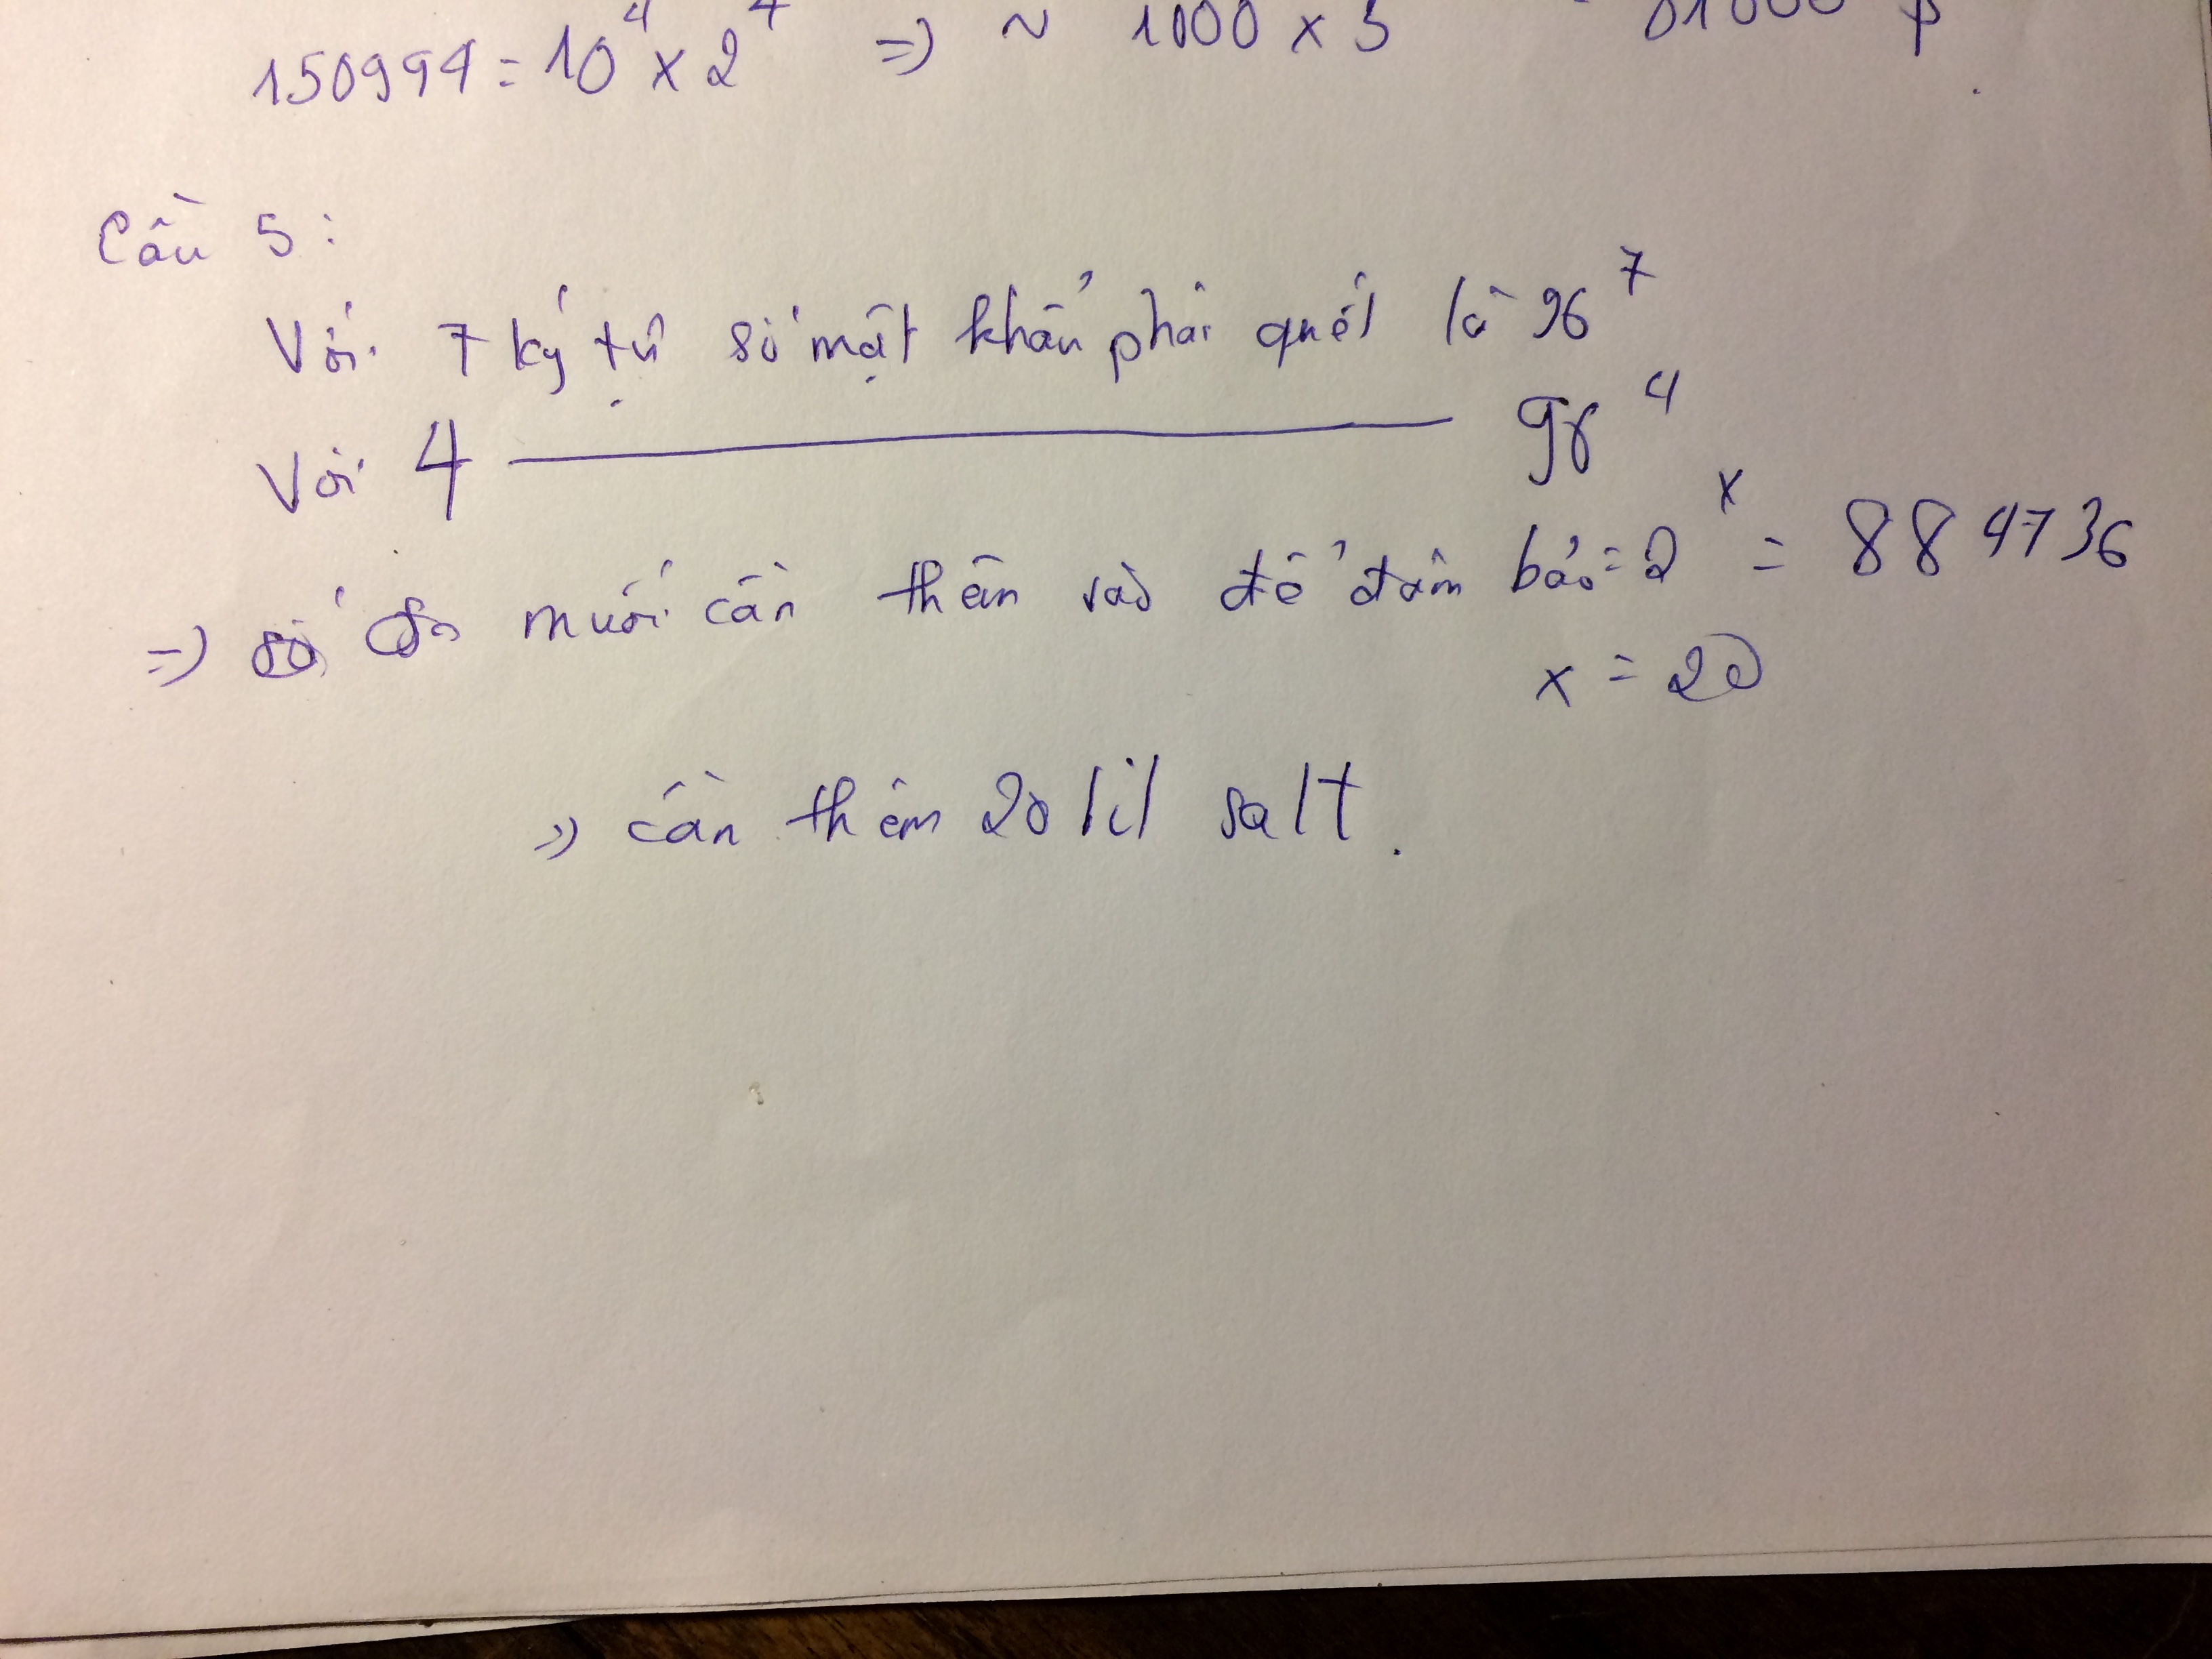 150994 = 10^4 x 2^4 => ~ 1000 x 5 = 01000
Câu 5:
Với 7 ký tự số mật khẩu phải quét là 96^7
Với 4 ——— 96^4
=> số muối cần thêm vào để đảm bảo = 2^x = 884736
x = 20
=> cần thêm 20 bit salt.